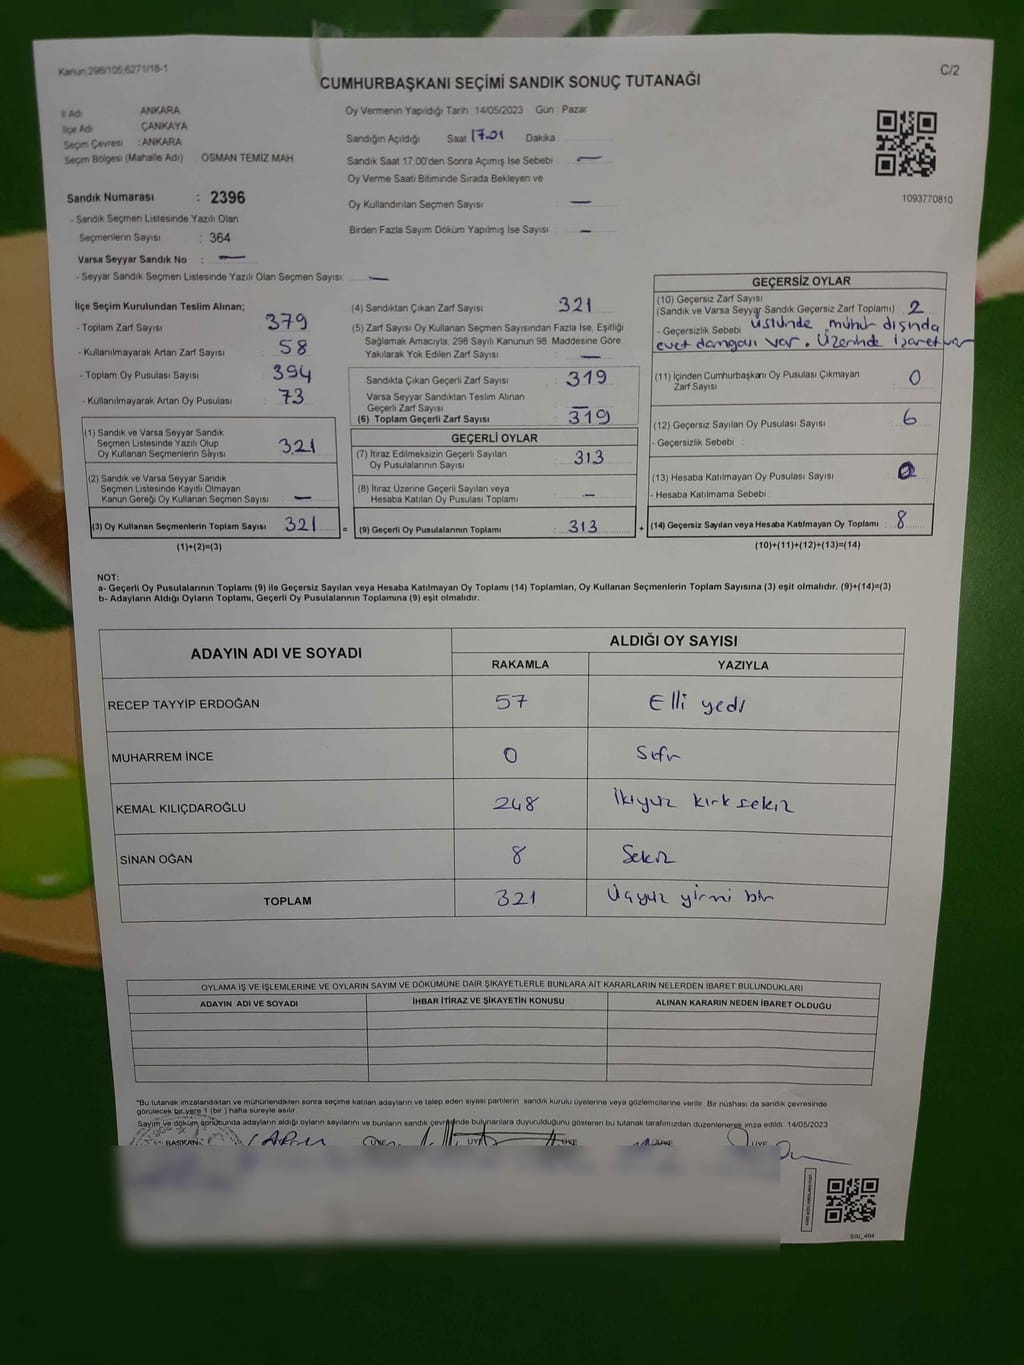 Kanun:298/105,6271/18-1
C/2
CUMHURBAŞKANI SEÇİMİ SANDIK SONUÇ TUTANAĞI
İl Adı ANKARA
İlçe Adı ÇANKAYA
Seçim Çevresi : ANKARA
Seçim Bölgesi (Mahalle Adı) OSMAN TEMİZ MAH.
Oy Vermenin Yapıldığı Tarih : 14/05/2023 Gün : Pazar
Sandığın Açıldığı Saat 17.01 Dakika
Sandık Saat 17.00'den Sonra Açımış İse Sebebi : —
Oy Verme Saati Bitiminde Sırada Bekleyen ve
Oy Kullandırılan Seçmen Sayısı : —
Birden Fazla Sayım Döküm Yapılmış İse Sayısı : —
1093770810
Sandık Numarası : 2396
- Sandık Seçmen Listesinde Yazılı Olan
Seçmenlerin Sayısı : 364
Varsa Seyyar Sandık No : —
- Seyyar Sandık Seçmen Listesinde Yazılı Olan Seçmen Sayısı: —
İlçe Seçim Kurulundan Teslim Alınan;
- Toplam Zarf Sayısı 379
- Kullanılmayarak Artan Zarf Sayısı 58
- Toplam Oy Pusulası Sayısı 394
- Kullanılmayarak Artan Oy Pusulası 73
(1) Sandık ve Varsa Seyyar Sandık
Seçmen Listesinde Yazılı Olup
Oy Kullanan Seçmenlerin Sayısı 321
(2) Sandık ve Varsa Seyyar Sandık
Seçmen Listesinde Kayıtlı Olmayan
Kanun Gereği Oy Kullanan Seçmen Sayısı —
(3) Oy Kullanan Seçmenlerin Toplam Sayısı 321 =
(1)+(2)=(3)
(4) Sandıktan Çıkan Zarf Sayısı 321
(5) Zarf Sayısı Oy Kullanan Seçmen Sayısından Fazla İse, Eşitliği
Sağlamak Amacıyla, 298 Sayılı Kanunun 98. Maddesine Göre
Yakılarak Yok Edilen Zarf Sayısı —
Sandıkta Çıkan Geçerli Zarf Sayısı 319
Varsa Seyyar Sandıktan Teslim Alınan
Geçerli Zarf Sayısı —
(6) Toplam Geçerli Zarf Sayısı 319
GEÇERLİ OYLAR
(7) İtiraz Edilmeksizin Geçerli Sayılan
Oy Pusulalarının Sayısı 313
(8) İtiraz Üzerine Geçerli Sayılan veya
Hesaba Katılan Oy Pusulası Toplamı —
(9) Geçerli Oy Pusulalarının Toplamı 313 +
GEÇERSİZ OYLAR
(10) Geçersiz Zarf Sayısı
(Sandık ve Varsa Seyyar Sandık Geçersiz Zarf Toplamı) : 2
- Geçersizlik Sebebi : üstünde mühür dışında
evet damgası var. Üzerinde işaret var
(11) İçinden Cumhurbaşkanı Oy Pusulası Çıkmayan
Zarf Sayısı 0
(12) Geçersiz Sayılan Oy Pusulası Sayısı 6
- Geçersizlik Sebebi :
(13) Hesaba Katılmayan Oy Pusulası Sayısı 0
- Hesaba Katılmama Sebebi :
(14) Geçersiz Sayılan veya Hesaba Katılmayan Oy Toplamı : 8
(10)+(11)+(12)+(13)=(14)
NOT:
a- Geçerli Oy Pusulalarının Toplamı (9) ile Geçersiz Sayılan veya Hesaba Katılmayan Oy Toplamı (14) Toplamları, Oy Kullanan Seçmenlerin Toplam Sayısına (3) eşit olmalıdır. (9)+(14)=(3)
b- Adayların Aldığı Oyların Toplamı, Geçerli Oy Pusulalarının Toplamına (9) eşit olmalıdır.
ADAYIN ADI VE SOYADI ALDIĞI OY SAYISI
RAKAMLA YAZIYLA
RECEP TAYYİP ERDOĞAN 57 Elli yedi
MUHARREM İNCE 0 Sıfır
KEMAL KILIÇDAROĞLU 248 İkiyüz kırk sekiz
SİNAN OĞAN 8 Sekiz
TOPLAM 321 Üçyüz yirmi bir
OYLAMA İŞ VE İŞLEMLERİNE VE OYLARIN SAYIM VE DÖKÜMÜNE DAİR ŞİKAYETLERLE BUNLARA AİT KARARLARIN NELERDEN İBARET BULUNDUKLARI
ADAYIN ADI VE SOYADI İHBAR İTİRAZ VE ŞİKAYETİN KONUSU ALINAN KARARIN NEDEN İBARET OLDUĞU
*Bu tutanak imzalandıktan ve mühürlendikten sonra seçime katılan adayların ve talep eden siyasi partilerin sandık kurulu üyelerine veya gözlemcilerine verilir. Bir nüshası da sandık çevresinde
görülecek bir yere 1 (bir ) hafta süreyle asılır.
Sayım ve döküm sonucunda adayların aldığı oyların sayılarını ve bunların sandık çevresinde bulunanlara duyurulduğunu gösteren bu tutanak tarafımızdan düzenlenerek imza edildi. 14/05/2023
BAŞKAN ÜYE ÜYE ÜYE ÜYE
SSI_404